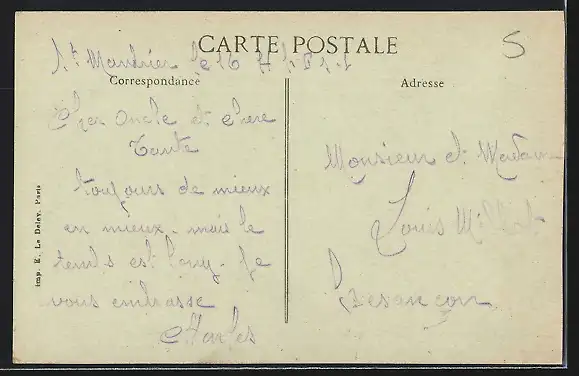 CARTE POSTALE
5
St Mandrier le 16
Correspondance
Adresse
Cher Oncle et chere
Tante
toujours de mieux
en mieux. mais le
temps est long. Je
vous embrasse
Charles
Monsieur et Madame
Louis
Besançon
Imp. E. Le Deley, Paris